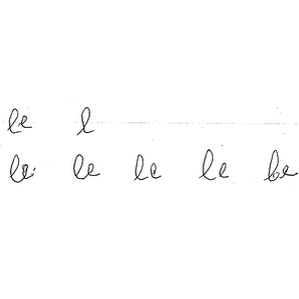 le l
le le le le be